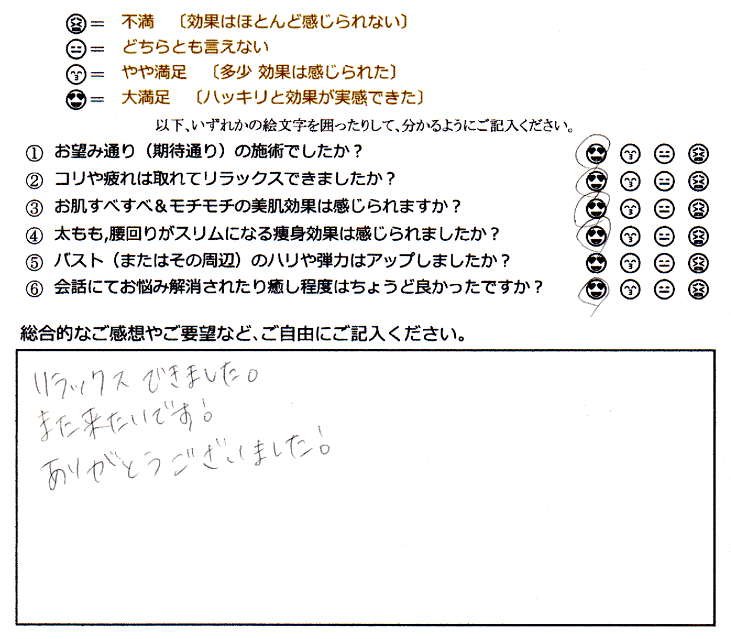 = 不満 〔効果はほとんど感じられない〕
= どちらとも言えない
= やや満足 〔多少 効果は感じられた〕
= 大満足 〔ハッキリと効果が実感できた〕
以下、いずれかの絵文字を囲ったりして、分かるようにご記入ください。
① お望み通り（期待通り）の施術でしたか？
② コリや疲れは取れてリラックスできましたか？
③ お肌すべすべ＆モチモチの美肌効果は感じられますか？
④ 太もも,腰回りがスリムになる痩身効果は感じられましたか？
⑤ バスト（またはその周辺）のハリや弾力はアップしましたか？
⑥ 会話にてお悩み解消されたり癒し程度はちょうど良かったですか？
総合的なご感想やご要望など、ご自由にご記入ください。
リラックスできました。
また来たいです！
ありがとうございました！